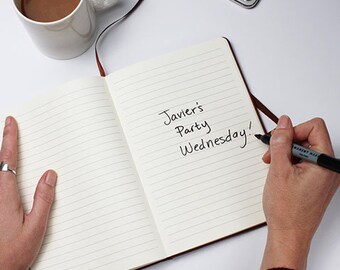 Javier's
Party
Wednesday!